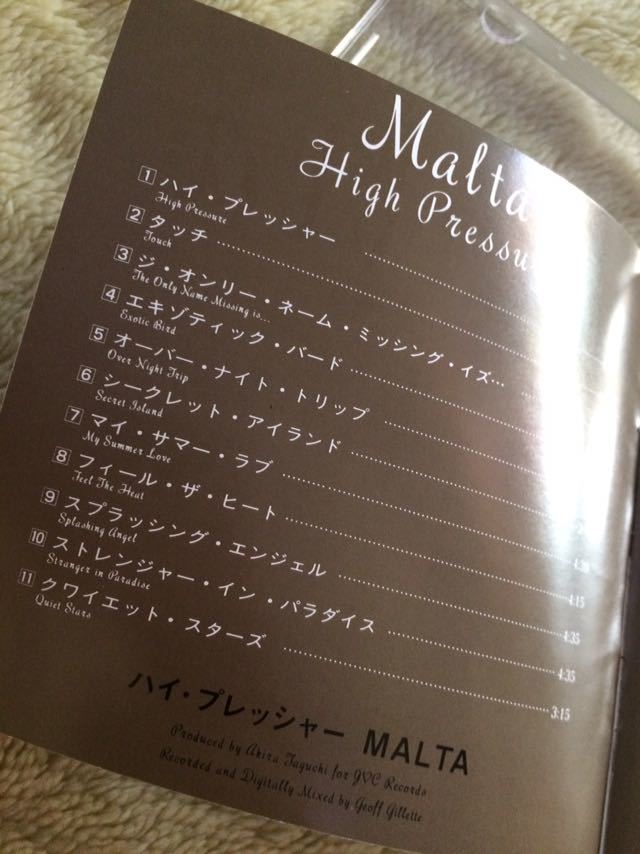 Malta
High Pressu
1 ハイ・プレッシャー
High Pressure
2 タッチ
Touch
3 ジ・オンリー・ネーム・ミッシング・イズ…
The Only Name Missing is...
4 エキゾティック・バード
Exotic Bird
5 オーバー・ナイト・トリップ
Over Night Trip
6 シークレット・アイランド
Secret Island
7 マイ・サマー・ラブ
My Summer Love
8 フィール・ザ・ヒート 4:15
Feel The Heat
9 スプラッシング・エンジェル 4:35
Splashing Angel
10 ストレンジャー・イン・パラダイス 4:35
Stranger in Paradise
11 クワイエット・スターズ 3:15
Quiet Stars
ハイ・プレッシャー MALTA
Produced by Akira Taguchi for JVC Records
Recorded and Digitally Mixed by Geoff Gillette